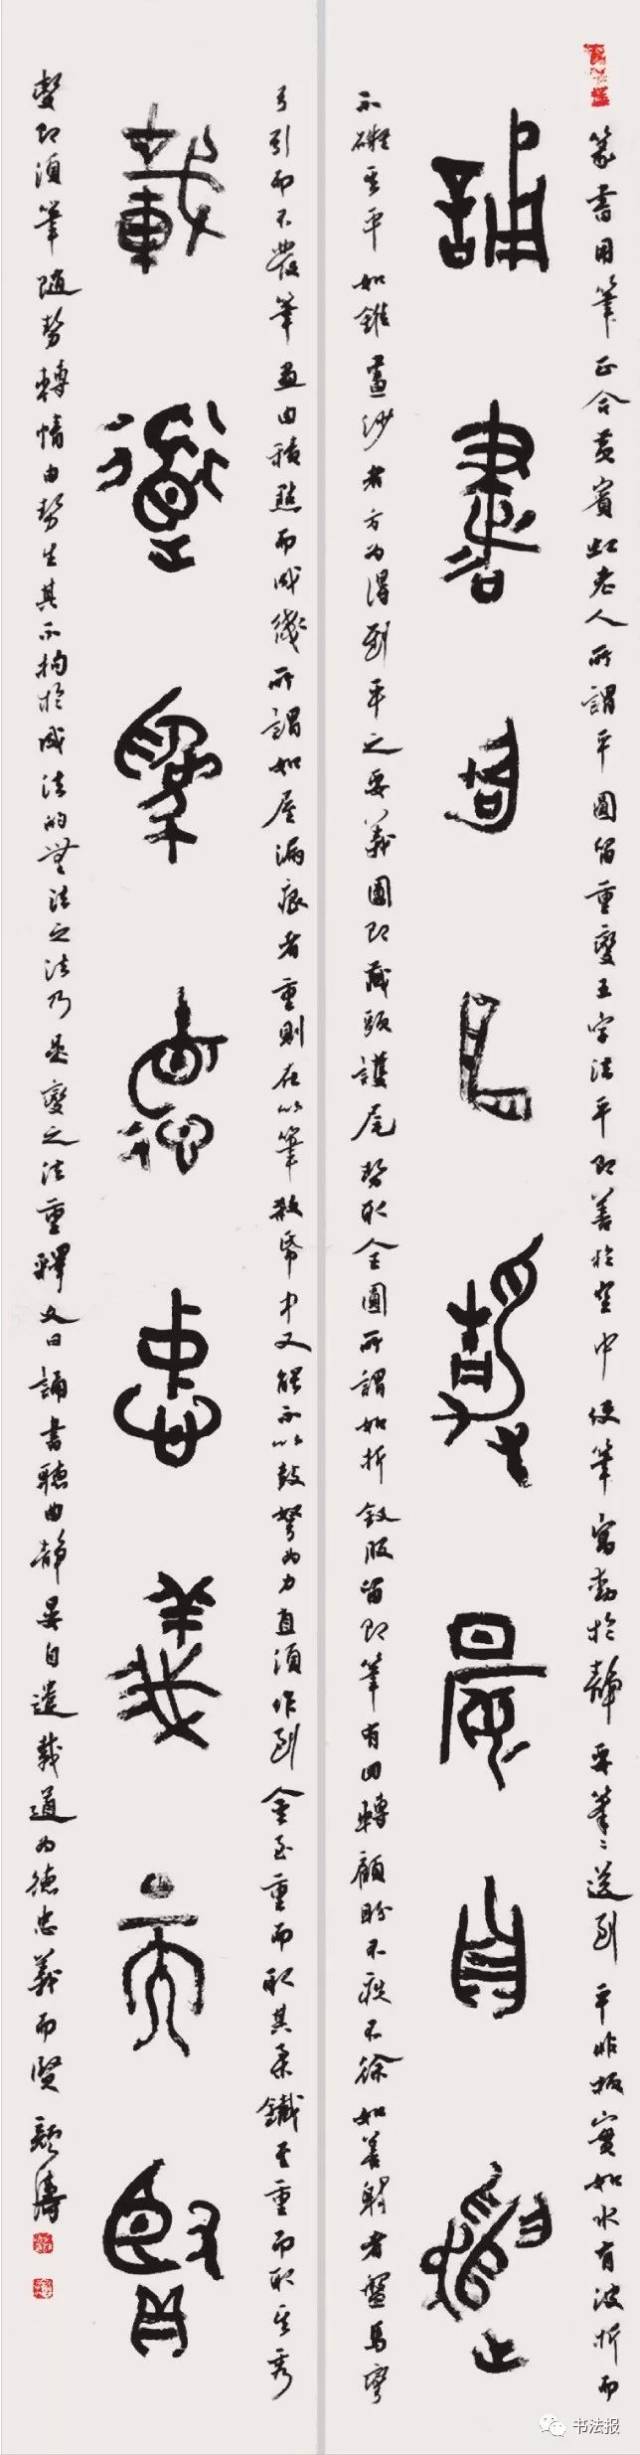 篆書用筆正合黃賓虹老人所謂平圓留重變五字法平即善於空中使筆寓動於靜要筆〻送到平非板實如水有波折而
誦書聽曲靜晏自遣
不礙其平如錐畫沙者方為得到平之要義圓即藏頭護尾勢取全圓所謂如折釵股留即筆有回轉顧盼不疾不徐如善射者盤馬彎
弓引而不發筆畫由積點而成線所謂如屋漏痕者重則在以筆殺紙中又能不以鼓努為力直須作到金至重而取其柔鐵至重而取其秀
載道為德忠義而賢
變即須筆隨勢轉情由勢生其不拘於成法的無法之法乃是變之法重釋文曰誦書聽曲靜晏自遣載道為德忠義而賢 顏濤
书法报